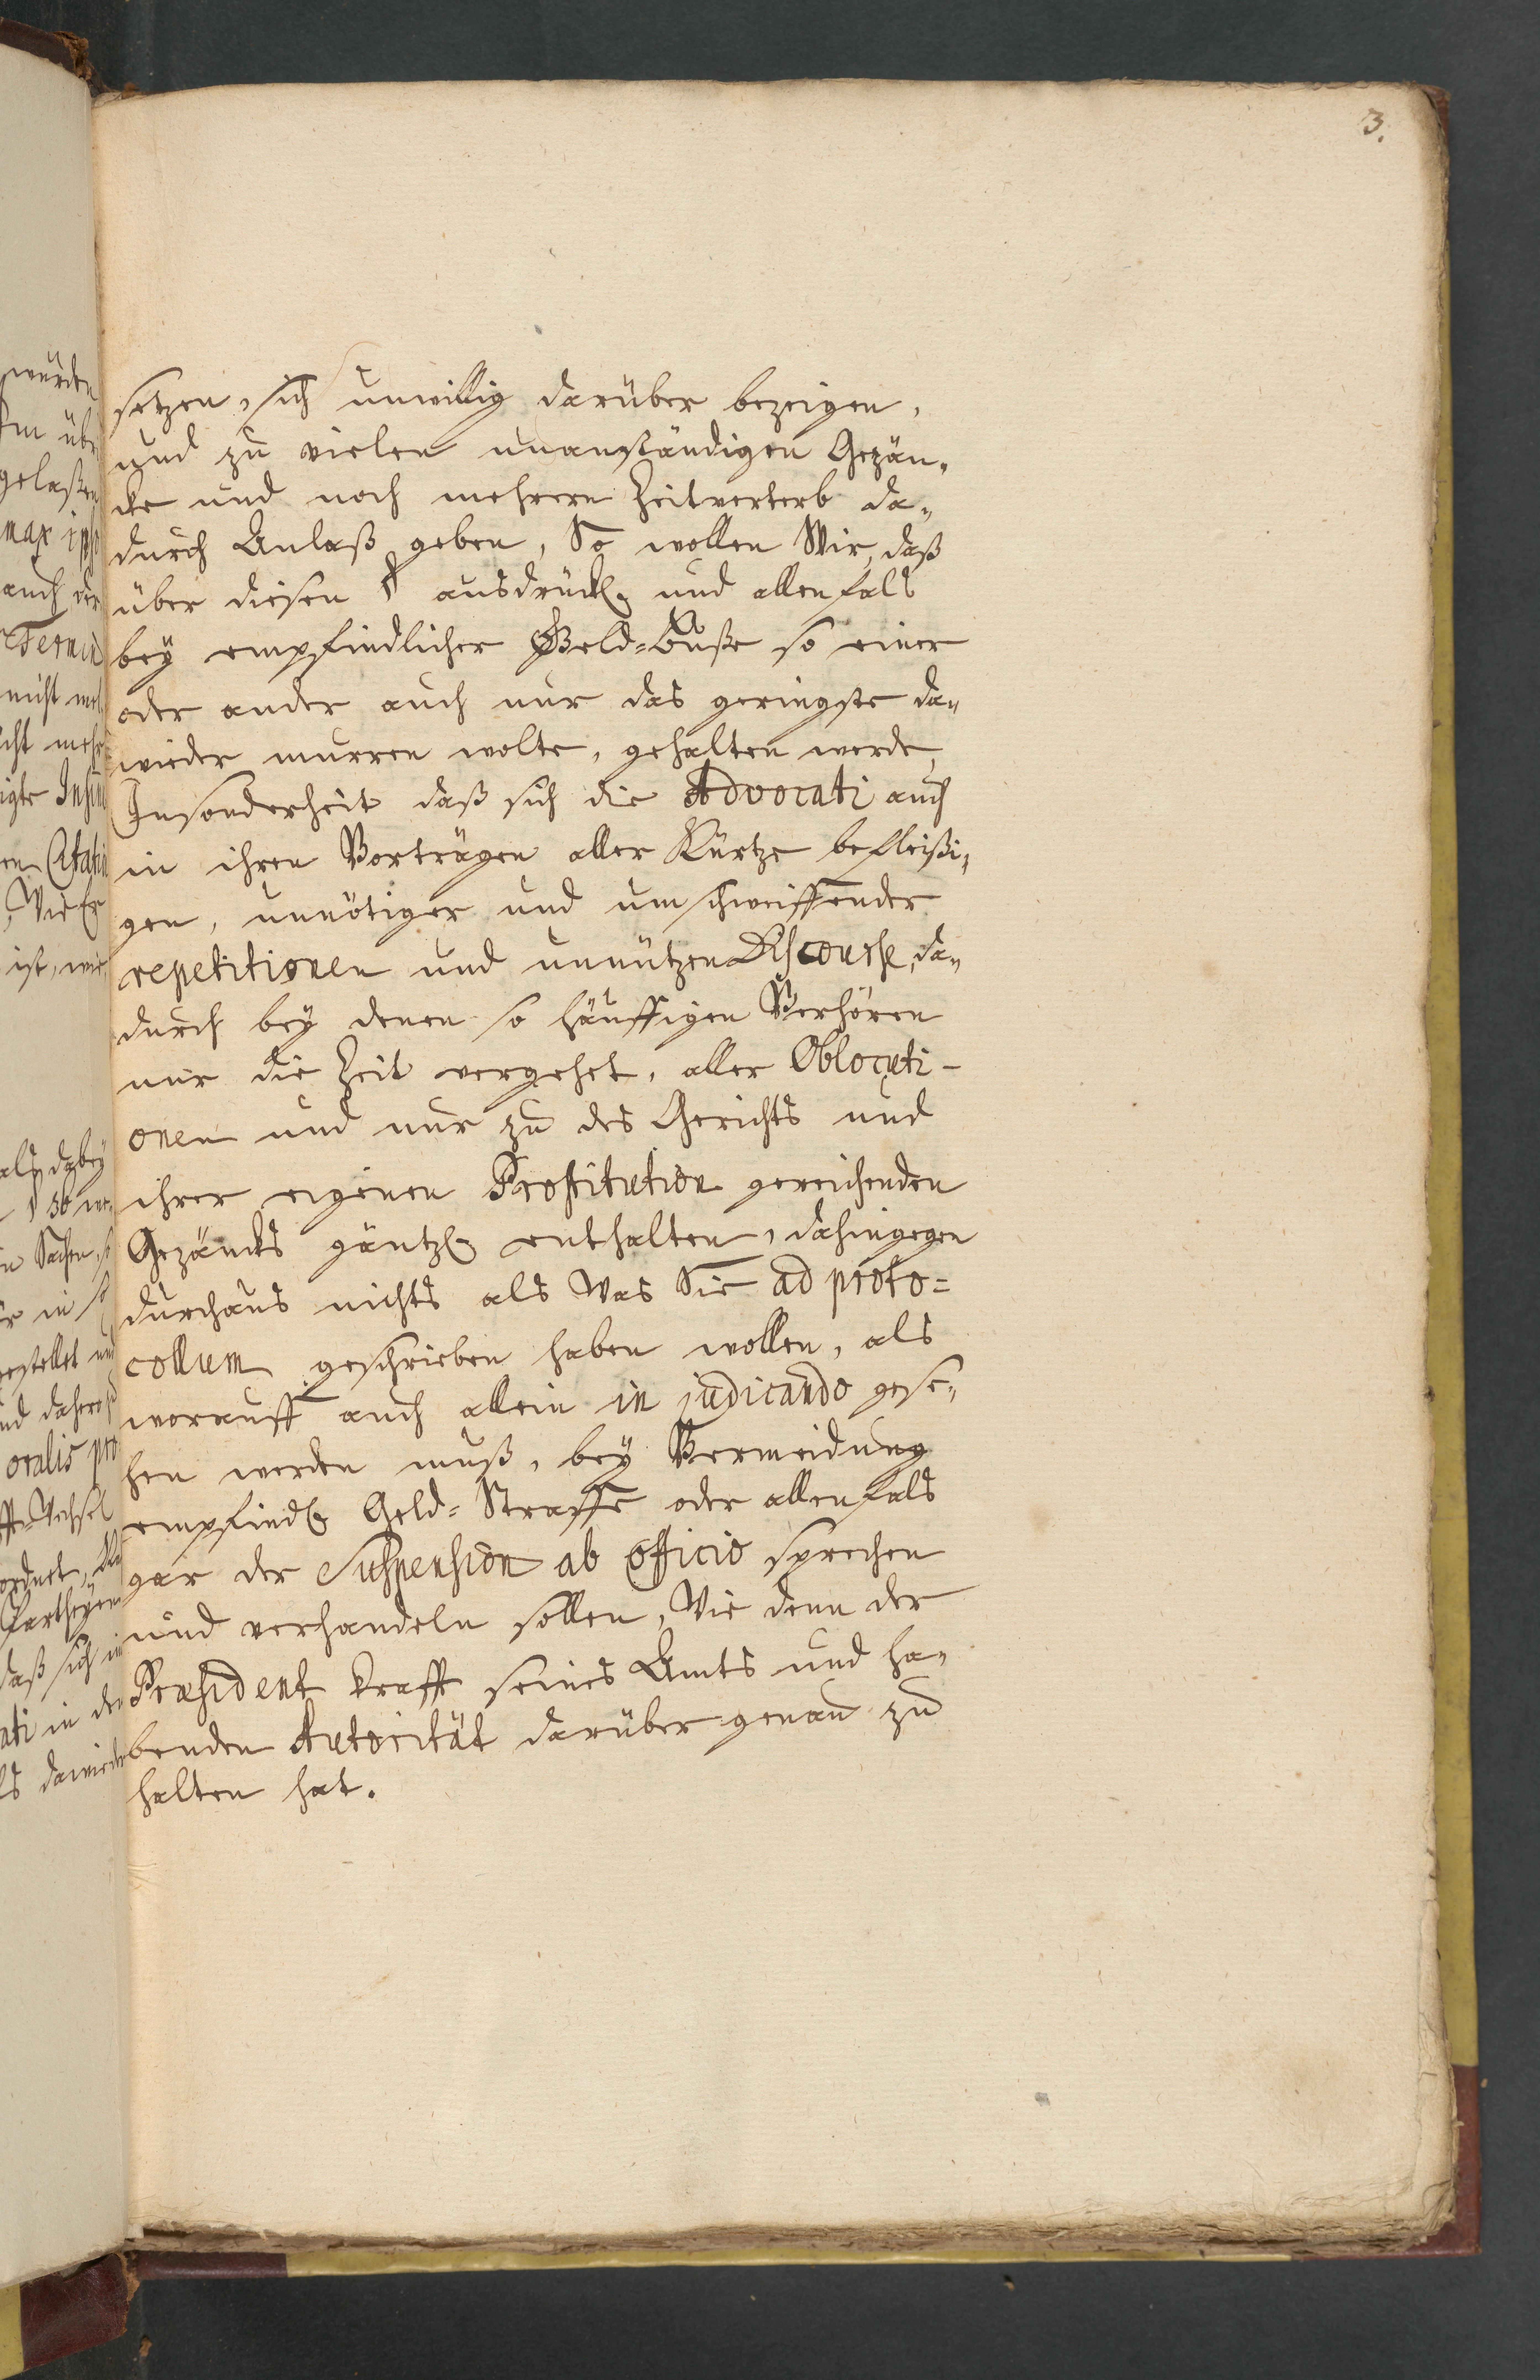 3.
setzen, sich unwillig darüber bezeigen,
und zu vielen unanständigen Gezän-
cke und noch mehrern Zeitverterb da-
durch Anlaß geben, So wollen Wir, daß
über diesen § ausdrückl. und allenfals
bey empfindlicher Geld-Buße so einer
oder ander auch nur das geringste da-
wieder murren wolte, gehalten werde,
Insonderheit daß sich die Advocati auch
in ihren Vorträgen aller Kürtze befleißi-
gen, unnötiger und umschweiffender
repetitionen und unnützen Discourse, da-
durch bey denen so häuffigen Verhören
nur die Zeit vergehet, aller Oblocuti-
onen und nur zu des Gerichts und
ihrer eigenen Prostitution gereichenden
Gezäncks gäntzl. enthalten, dahingegen
durchaus nichts als Was Sie ad proto=
collum geschrieben haben wollen, als
worauff auch allein in judicando gese-
hen werden muß, bey Vermeidung
empfindl. Geld-Straffe oder allenfals
gar der Suspension ab officio sprechen
und verhandeln sollen, Wie denn der
Præsident krafft seines Ambts und ha-
benden Autorität darüber genau zu
halten hat.
würden
gelaßen
auch der
Termin
als dabey
oralis pro
Partheyen
daß sich in
ati in der